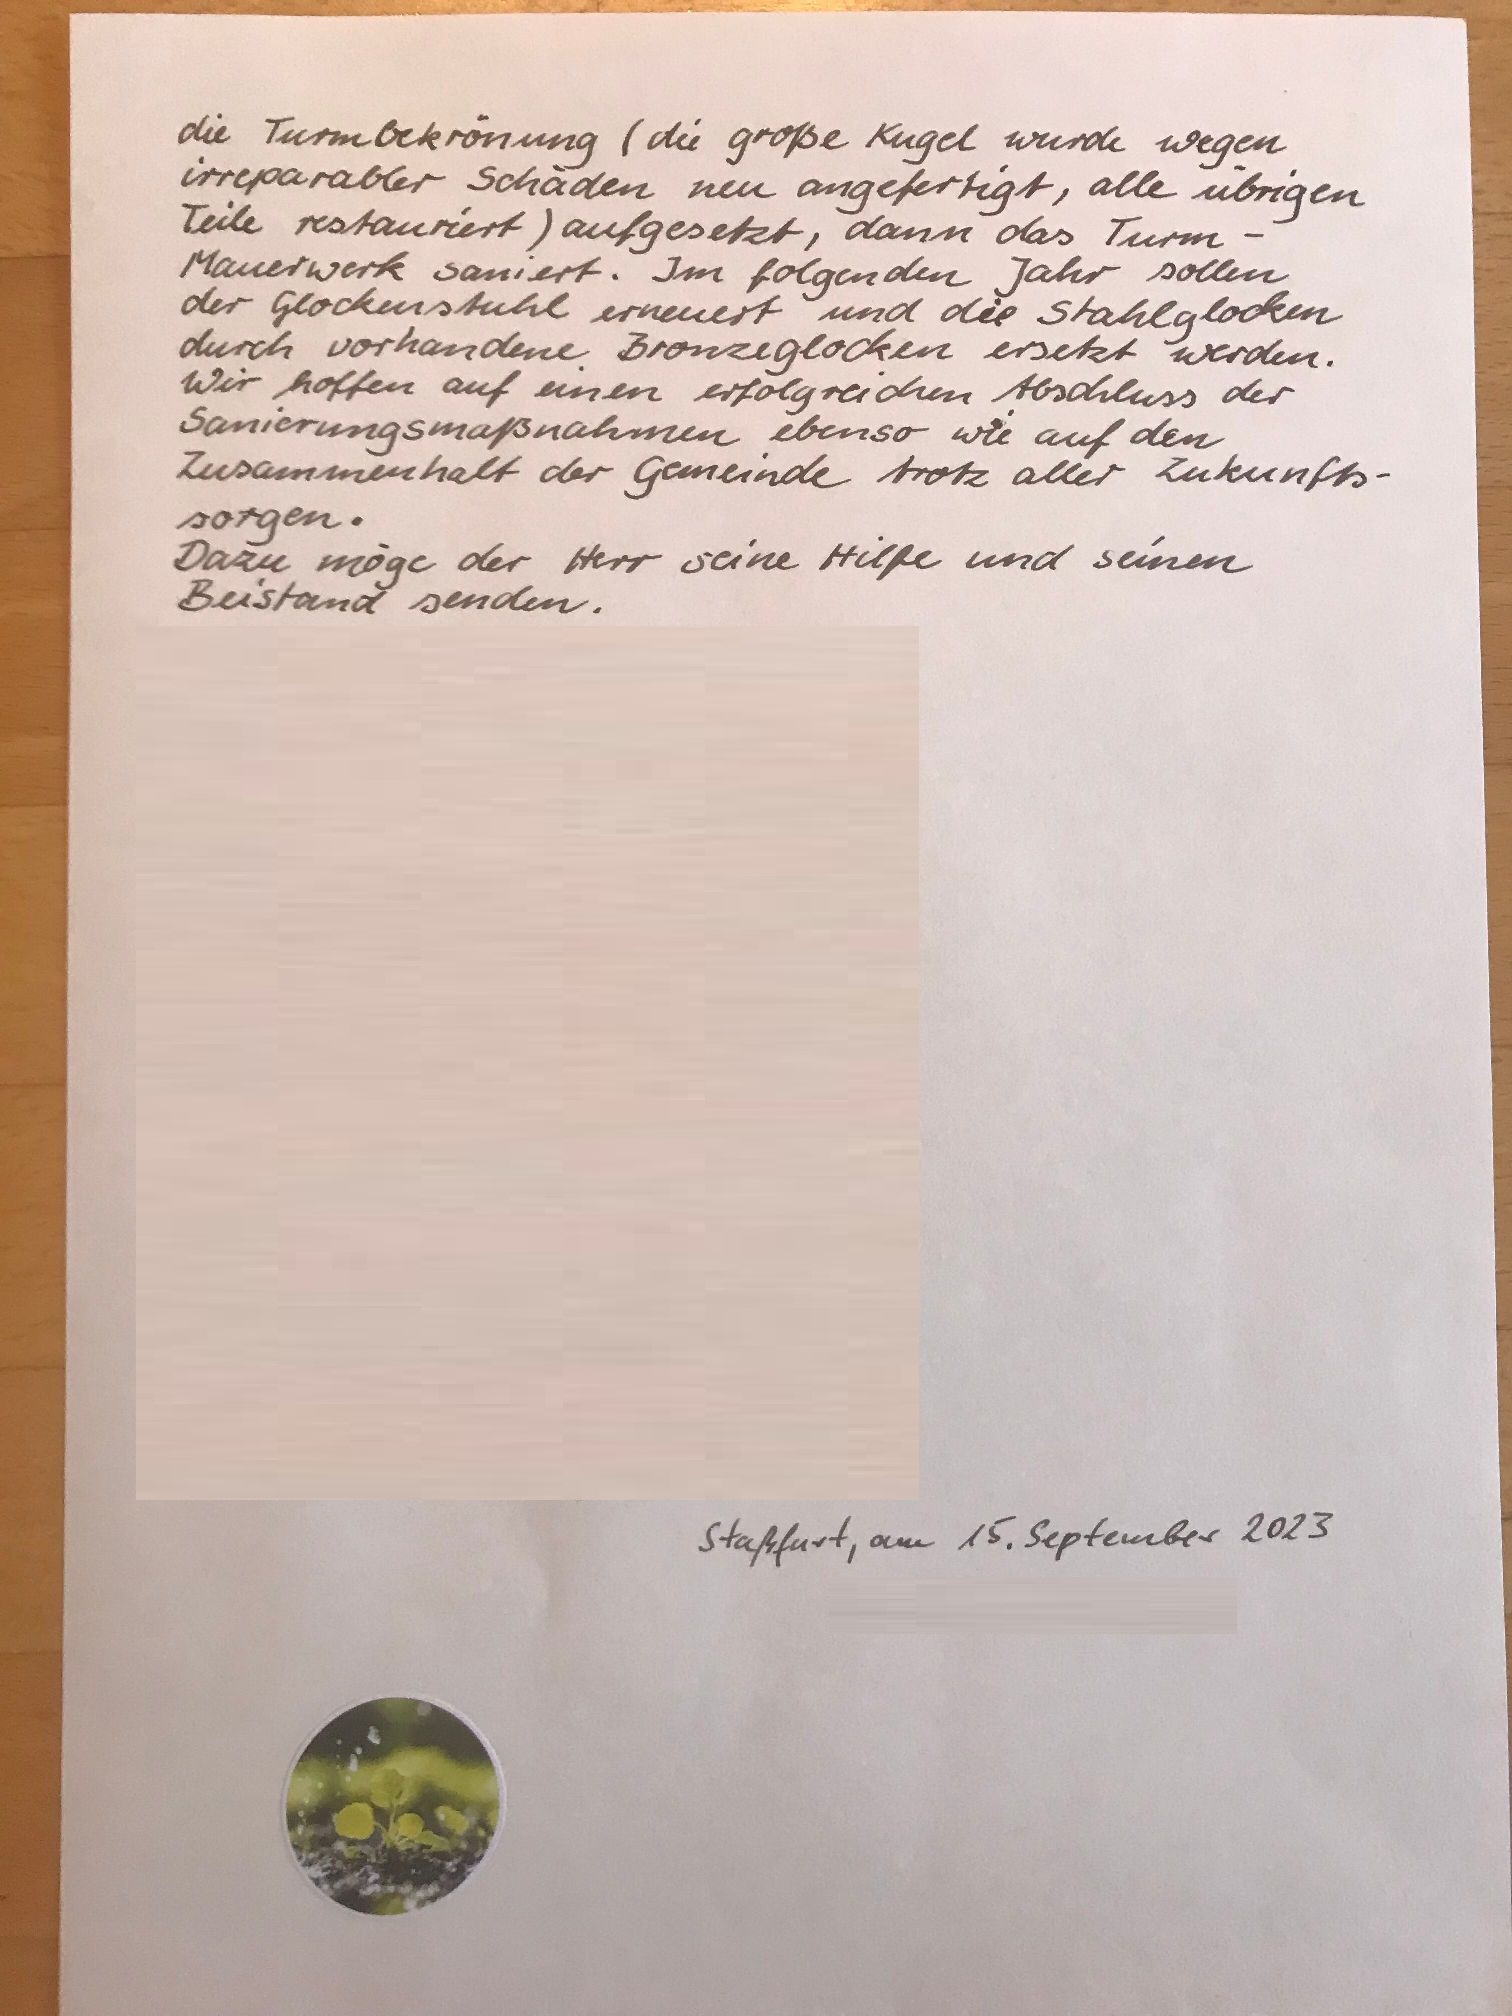 die Turmbekrönung (die große Kugel wurde wegen
irreparabler Schäden neu angefertigt, alle übrigen
Teile restauriert) aufgesetzt, dann das Turm-
Mauerwerk saniert. Im folgenden Jahr sollen
der Glockenstuhl erneuert und die Stahlglocken
durch vorhandene Bronzeglocken ersetzt werden.
Wir hoffen auf einen erfolgreichen Abschluss der
Sanierungsmaßnahmen ebenso wie auf den
Zusammenhalt der Gemeinde trotz aller Zukunfts-
sorgen.
Dazu möge der Herr seine Hilfe und seinen
Beistand senden.
Staßfurt, am 15. September 2023